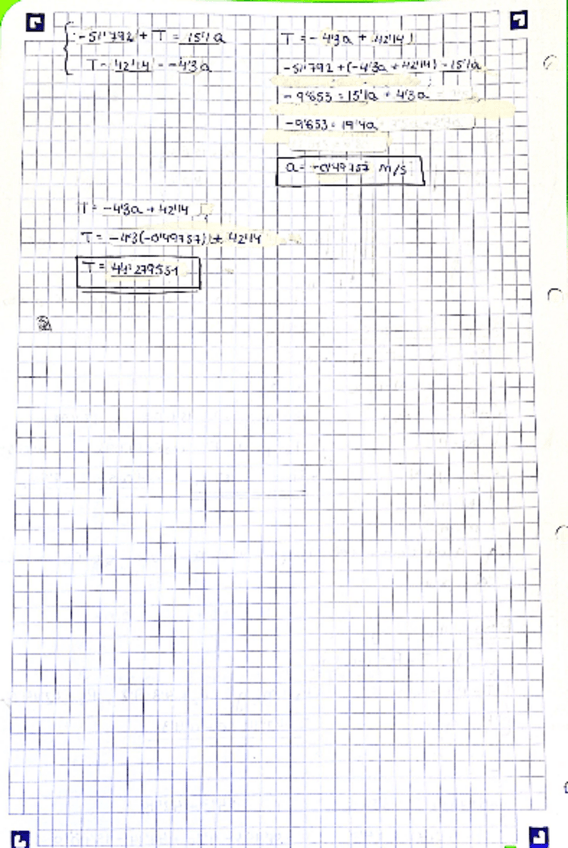 -51'792 + T = 15'1a
T - 42'14 = -4'3a
T = -4'3a + 42'14
-51'792 + (-4'3a + 42'14) = 15'1a
-9'653 = 15'1a + 4'3a
-9'653 = 19'4a
a = -0'49757 m/s
T = -4'3a + 42'14
T = -4'3(-0'49757) + 42'14
T = 44'279551